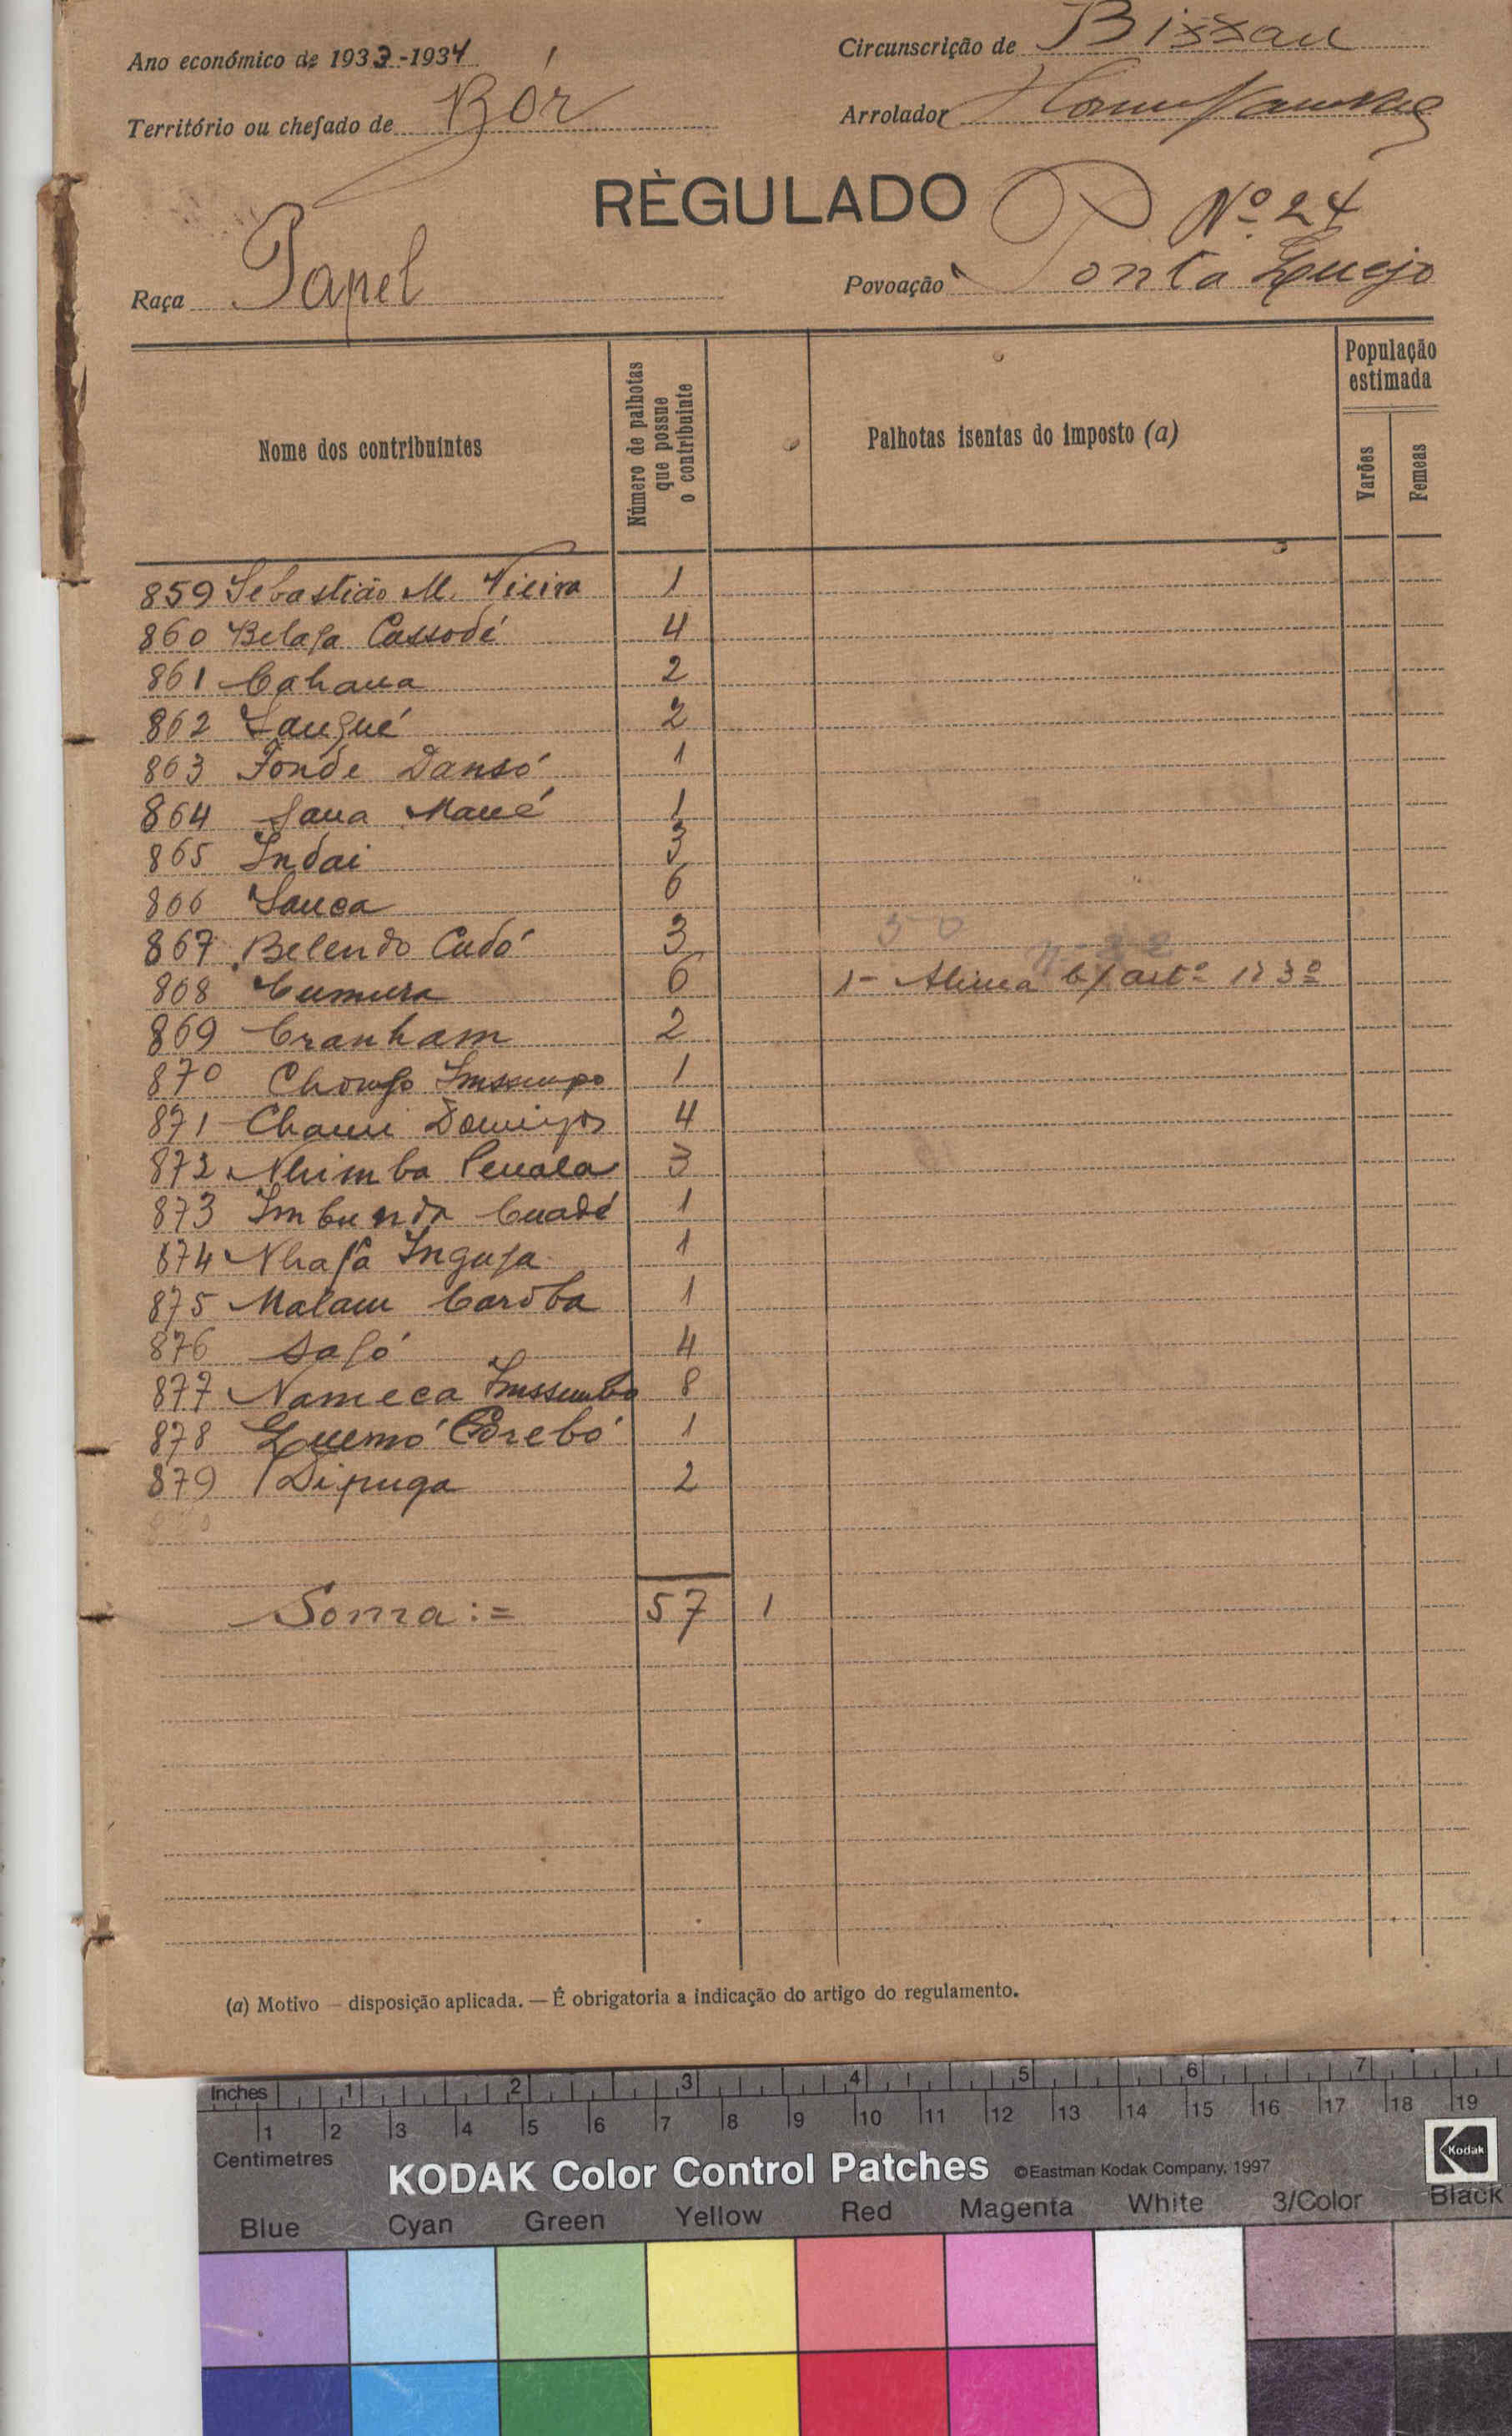 Ano económico de 1933-1934
Circunscrição de Bissau
Território ou chefado de Bór
Arrolador
RÈGULADO
Nº 24
Raça Papel
Povoação Ponta
Nome dos contribuintes
Número de palhotas que possue o contribuinte
Palhotas isentas do imposto (a)
População estimada
Varões
Femeas
859 Sebastião M. Vieira 1
860 Belafa Cassodé 4
861 Cahaua 2
862 2
863 Fonde Dansó 1
864 Sana Mané 1
865 Indai 3
866 Sanca 6
867 Belendo Cadó 3
868 Cumura 6 1- Alinea b/ artº 1º 3º
869 Cranham 2
870 1
871 Chami Domingos 4
872 Nhimba 3
873 Imbunda Cuadé 1
874 Nhafa Ingufa 1
875 Malam Caroba 1
876 Safó 4
877 Nameca Imssumbo 8
878 Quemó Corebó 1
879 Dipuga 2
Soma := 57 1
(a) Motivo — disposição aplicada. — É obrigatoria a indicação do artigo do regulamento.
Inches 1 2 3 4 5 6 7
1 2 3 4 5 6 7 8 9 10 11 12 13 14 15 16 17 18 19
Centimetres
KODAK Color Control Patches ©Eastman Kodak Company, 1997 Kodak
Blue Cyan Green Yellow Red Magenta White 3/Color Black